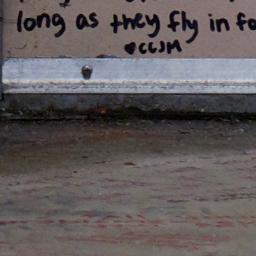 long as they fly in fo
@CCJM